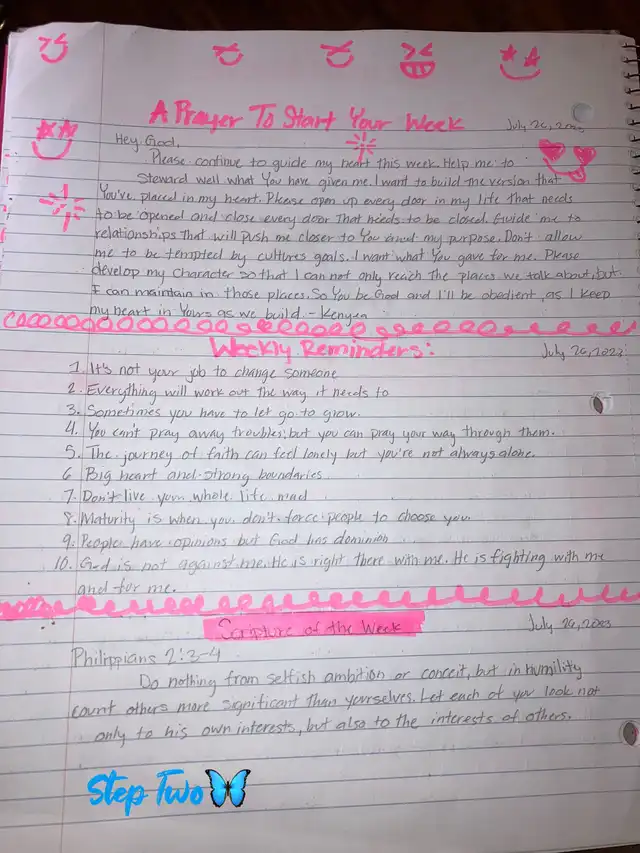 A Prayer To Start Your Week
July 26, 2023
Hey God,
Please continue to guide my heart this week. Help me to
steward well what You have given me. I want to build the version that
You've placed in my heart. Please open up every door in my life that needs
to be opened and close every door that needs to be closed. Guide me to
relationships that will push me closer to You and my purpose. Don't allow
me to be tempted by cultures goals. I want what You gave for me. Please
develop my character so that I can not only reach the places we talk about, but
I can maintain in those places. So You be God and I'll be obedient, as I keep
my heart in Yours as we build. - Kenyea
Weekly Reminders:
July 26, 2023
1. It's not your job to change someone
2. Everything will work out the way it needs to
3. Sometimes you have to let go to grow.
4. You can't pray away troubles, but you can pray your way through them.
5. The journey of faith can feel lonely but you're not always alone.
6 Big heart and strong boundaries
7. Don't live your whole life mad
8. Maturity is when you don't force people to choose you.
9. People have opinions but God has dominion
10. God is not against me. He is right there with me. He is fighting with me
and for me.
Scripture of the Week
July 26, 2023
Philippians 2:3-4
Do nothing from selfish ambition or conceit, but in humility
count others more significant than yourselves. Let each of you look not
only to his own interests, but also to the interests of others.
Step Two